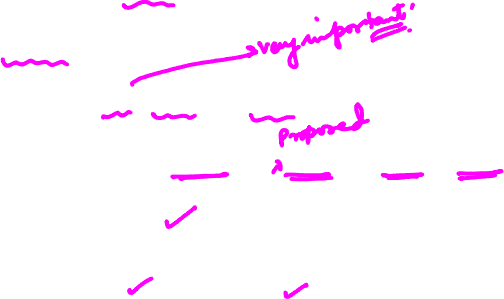 very important!
proposed